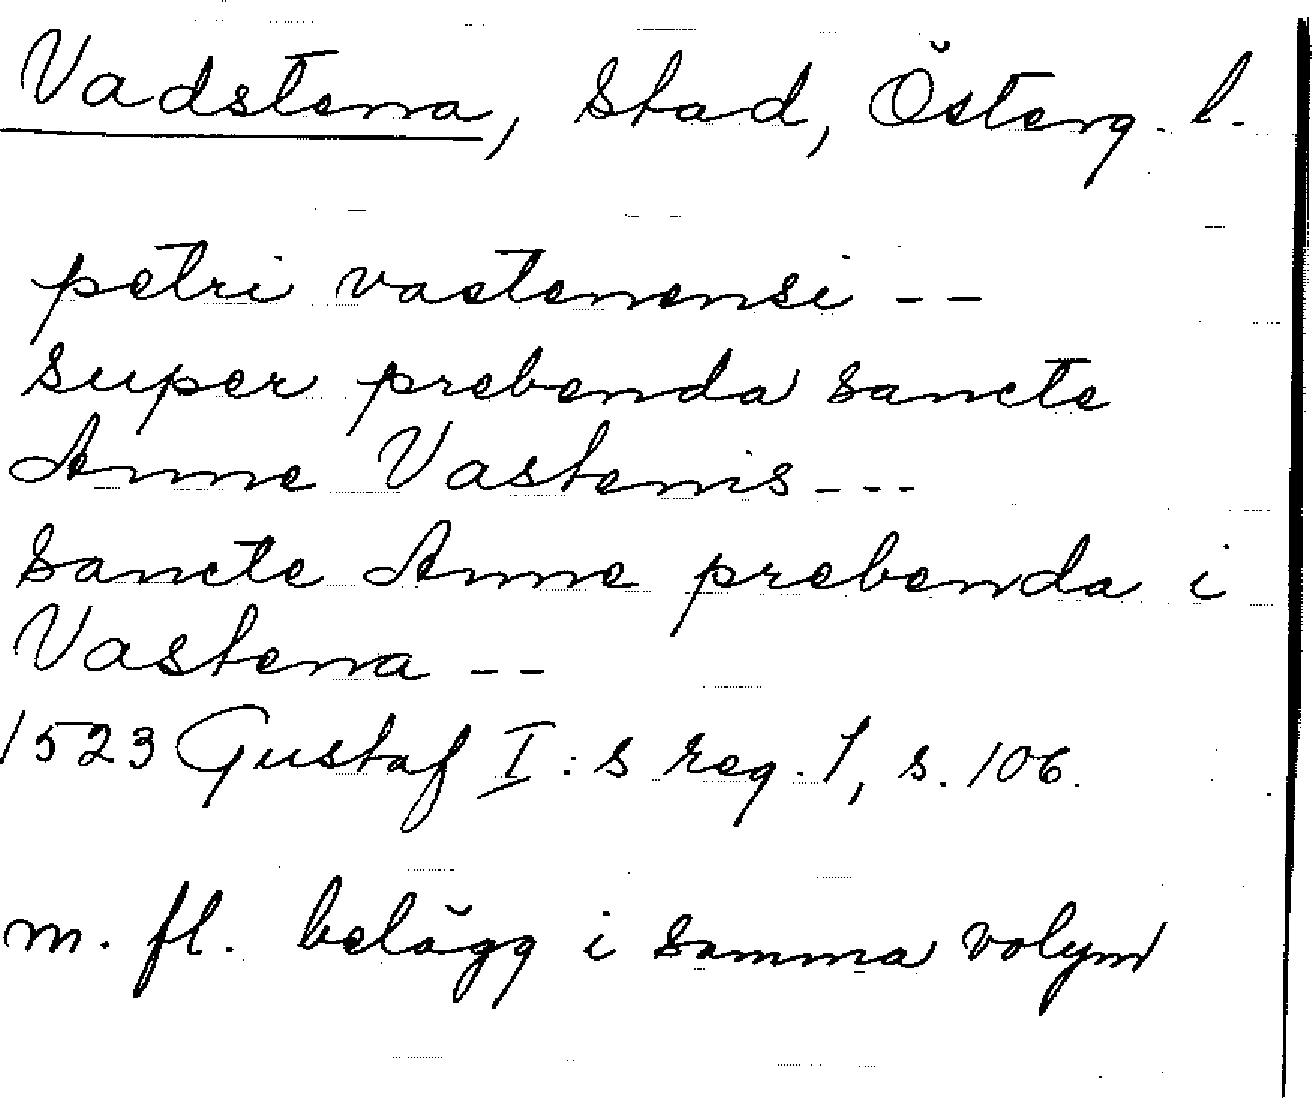 Vadstena, stad, Österg. l.
petri vastenensi --
super prebenda sancte
Anne Vastenis ---
Sancte Anne prebenda i
Vastena --
1523 Gustaf I:s reg. 1, s. 106.
m. fl. belägg i samma volym